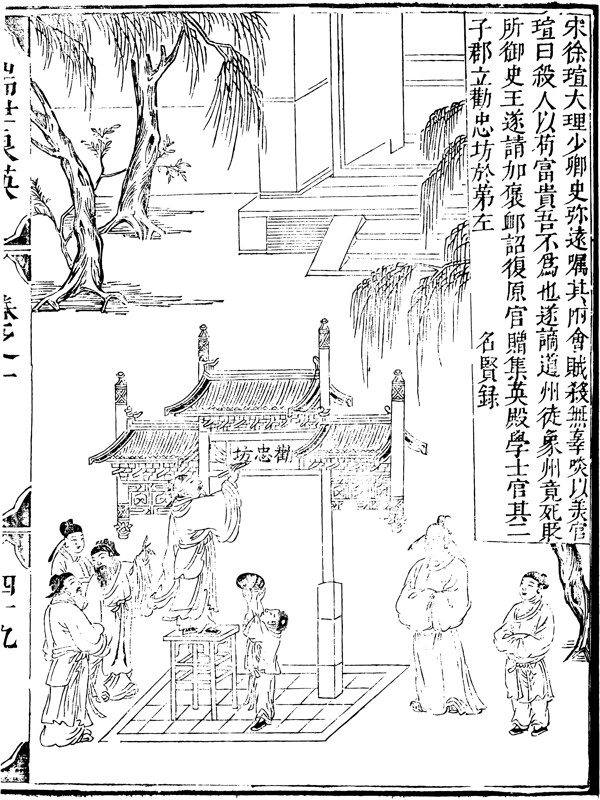 宋徐瑄大理少卿史弥遠嘱其附會賊殺無辜啖以美官
瑄曰殺人以苟富貴吾不爲也遂謫道州徙象州竟死貶
所御史王遂請加褒䘏詔復原官贈集英殿學士官其二
子郡立勸忠坊於第左
名賢録
勸忠坊
瑞世良英
卷之
四十九